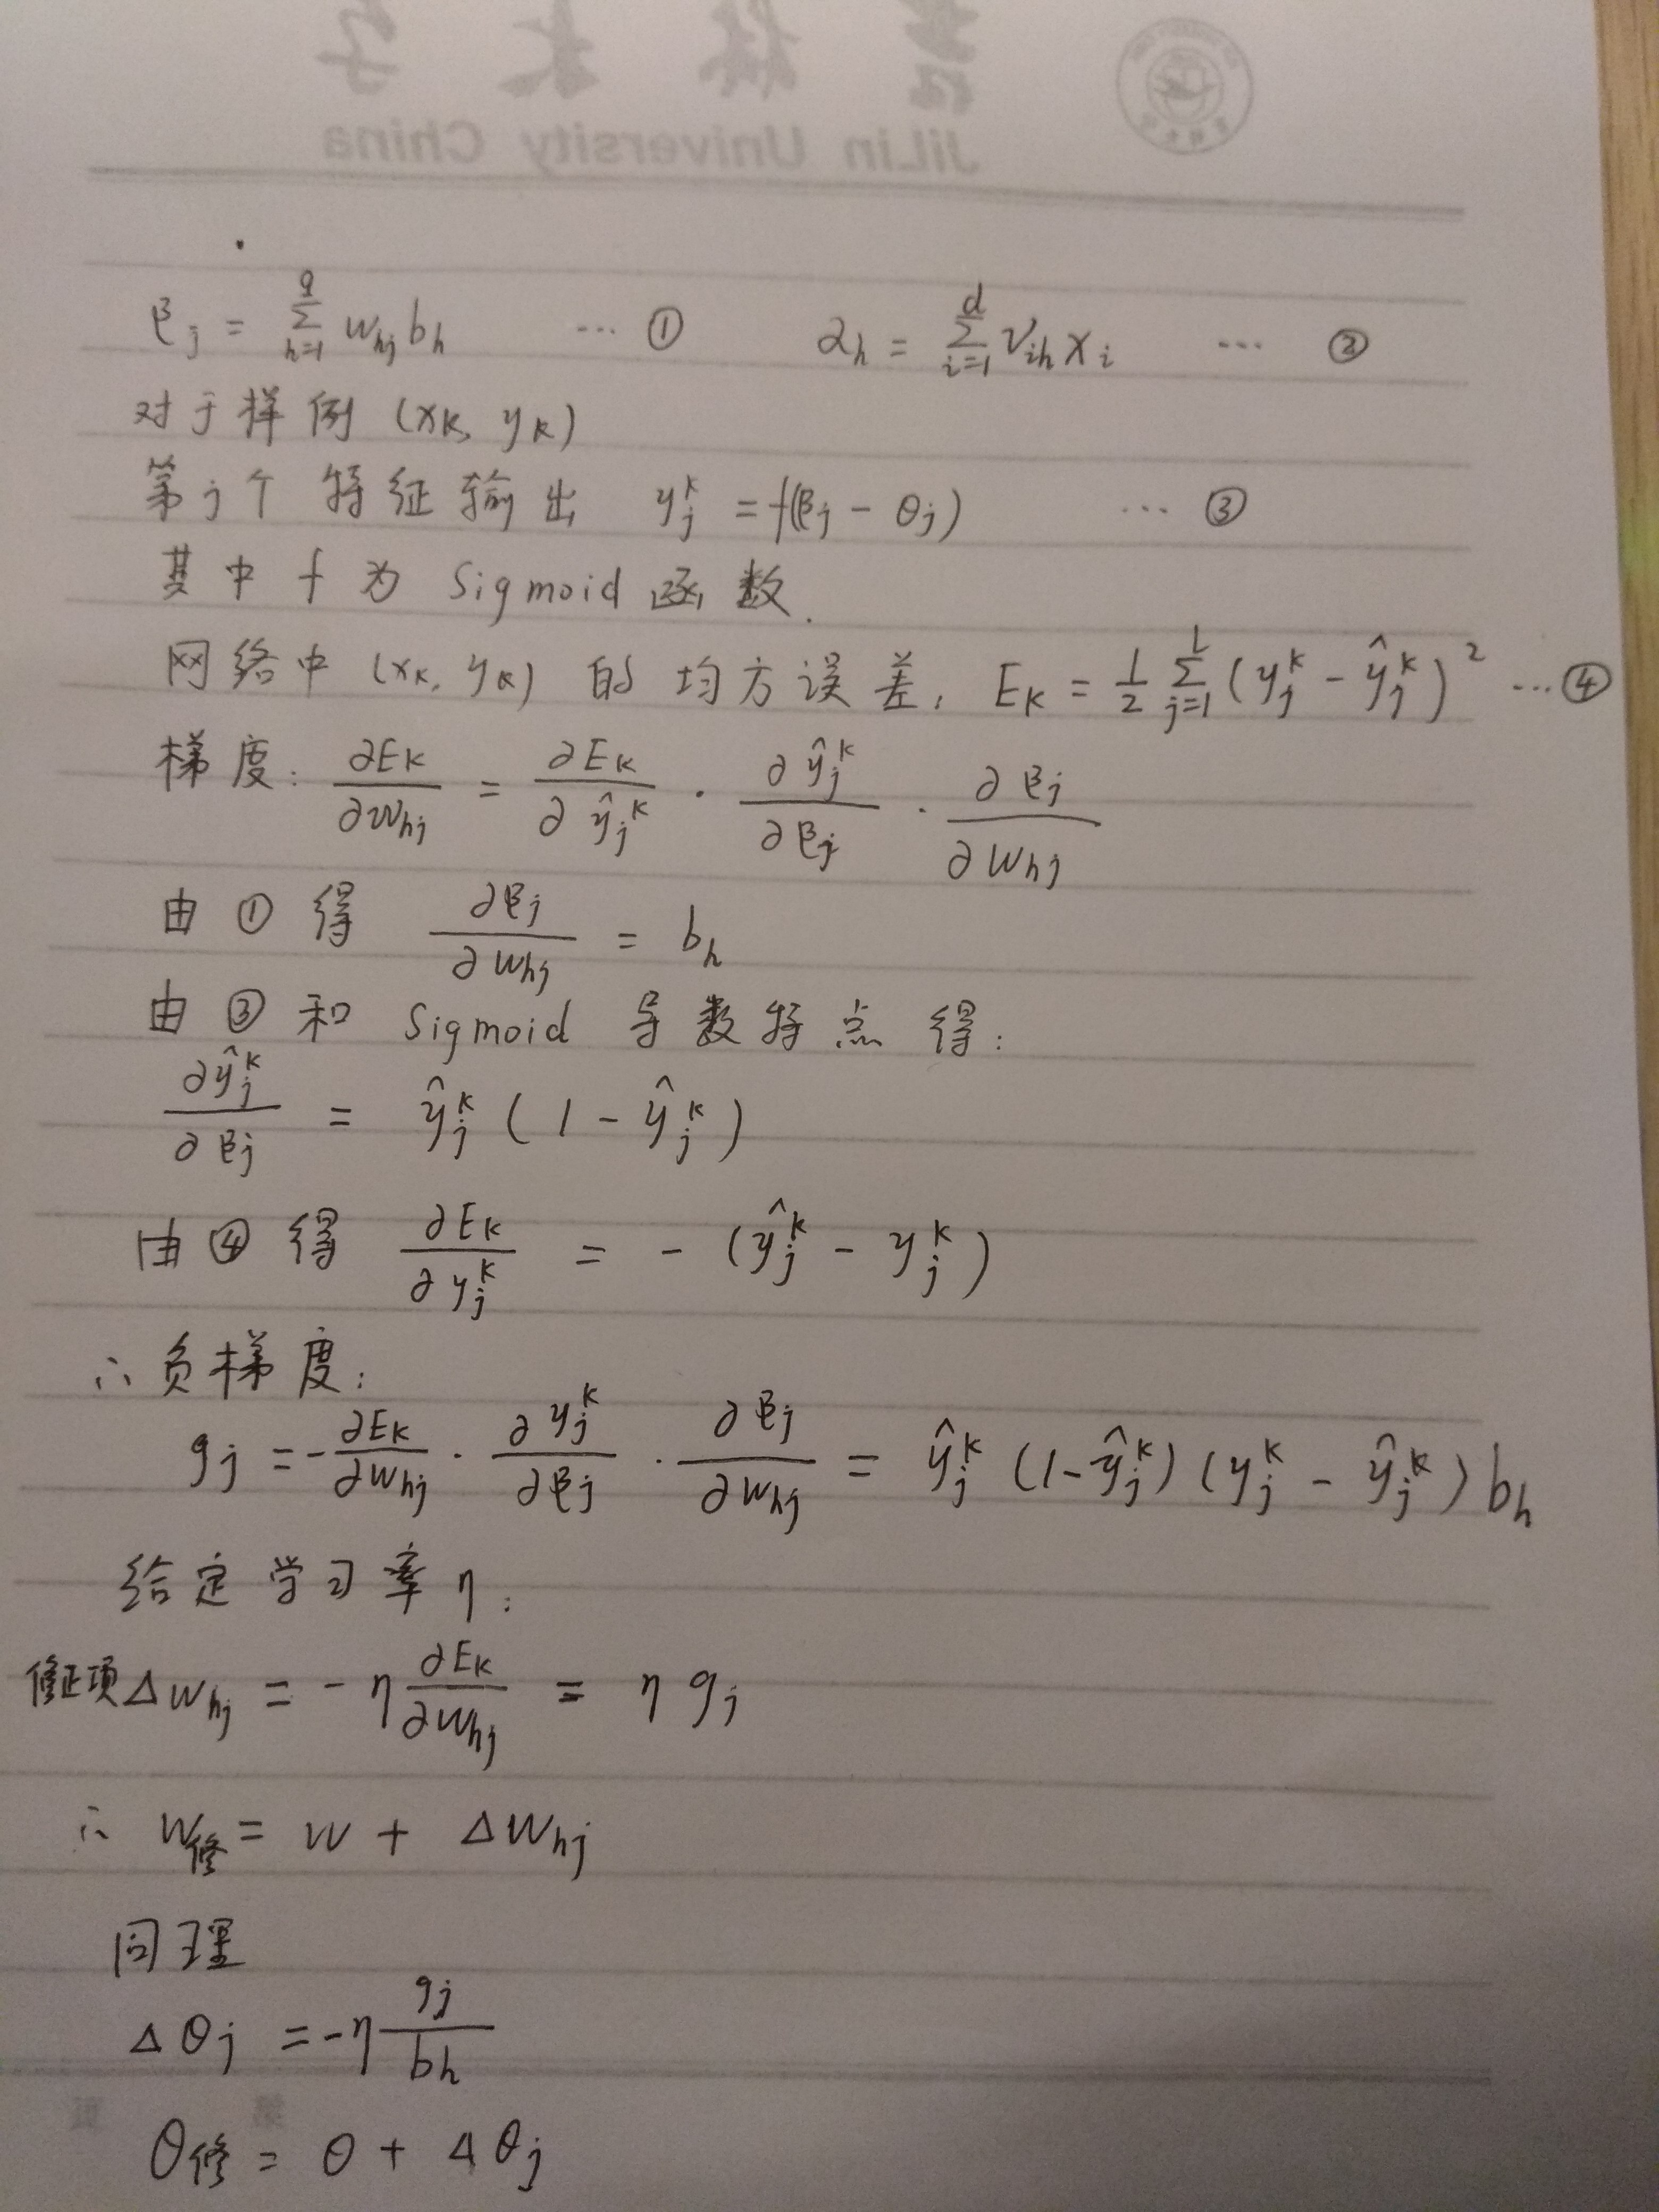 吉林大学
JiLin University China
β_j = Σ_{h=1}^{q} w_{hj} b_h … ① α_h = Σ_{i=1}^{d} v_{ih} x_i … ②
对于样例 (x_k, y_k)
第 j 个 特征输出 y_j^k = f(β_j - θ_j) … ③
其中 f 为 Sigmoid 函数.
网络中 (x_k, y_k) 的均方误差, E_k = 1/2 Σ_{j=1}^{l} (y_j^k - ŷ_j^k)^2 … ④
梯度: ∂E_k/∂w_{hj} = ∂E_k/∂ŷ_j^k · ∂ŷ_j^k/∂β_j · ∂β_j/∂w_{hj}
由 ① 得 ∂β_j/∂w_{hj} = b_h
由 ③ 和 Sigmoid 导数特点得:
∂ŷ_j^k/∂β_j = ŷ_j^k (1 - ŷ_j^k)
由 ④ 得 ∂E_k/∂y_j^k = - (ŷ_j^k - y_j^k)
∴ 负梯度:
g_j = -∂E_k/∂w_{hj} · ∂y_j^k/∂β_j · ∂β_j/∂w_{hj} = ŷ_j^k (1-ŷ_j^k) (y_j^k - ŷ_j^k) b_h
给定学习率 η:
修正项 Δw_{hj} = - η ∂E_k/∂w_{hj} = η g_j
∴ w_修 = w + Δw_{hj}
同理
Δθ_j = -η g_j/b_h
θ_修 = θ + Δθ_j